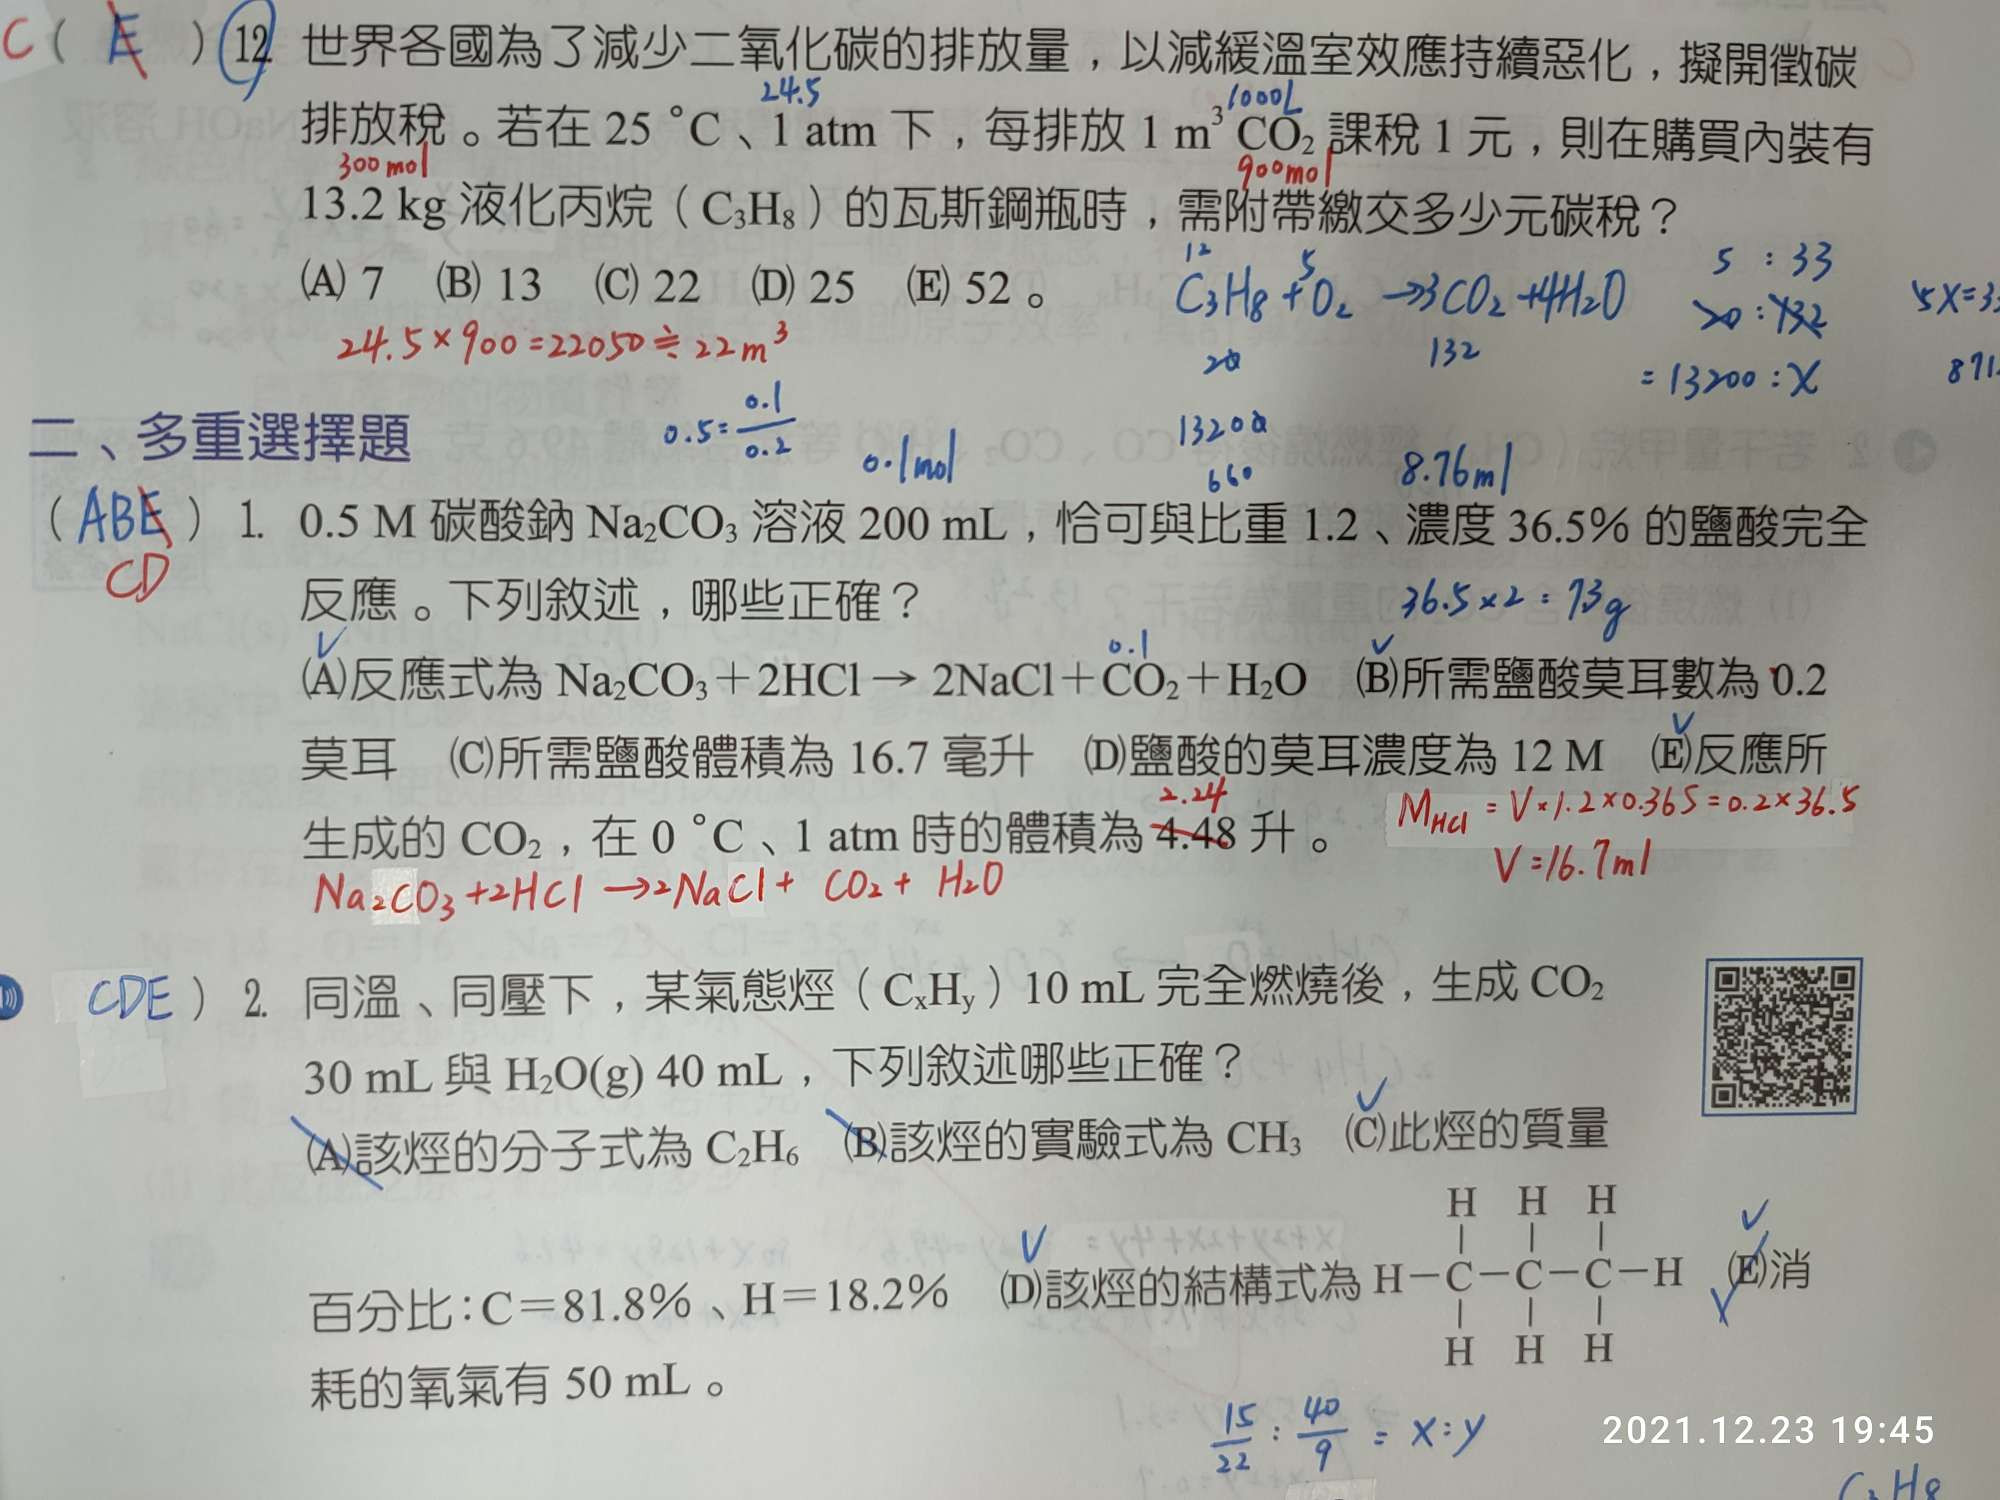 C ( E ) 12. 世界各國為了減少二氧化碳的排放量，以減緩溫室效應持續惡化，擬開徵碳
24.5 1000L
排放稅。若在 25 °C、1 atm 下，每排放 1 m³ CO₂ 課稅 1 元，則在購買內裝有
300mol 900mol
13.2 kg 液化丙烷（C₃H₈）的瓦斯鋼瓶時，需附帶繳交多少元碳稅？
(A) 7 (B) 13 (C) 22 (D) 25 (E) 52。
12 5
C₃H₈+O₂ →3CO₂+4H₂O
132
5 : 33
20 : 132
= 13200 : X
24.5×900=22050≒22m³
二、多重選擇題
0.5=0.1/0.2
0.1mol
660
8.76ml
( ABE ) 1. 0.5 M 碳酸鈉 Na₂CO₃ 溶液 200 mL，恰可與比重 1.2、濃度 36.5% 的鹽酸完全
CD
反應。下列敘述，哪些正確？
36.5×2=73g
0.1
(A)反應式為 Na₂CO₃＋2HCl→ 2NaCl＋CO₂＋H₂O (B)所需鹽酸莫耳數為 0.2
莫耳 (C)所需鹽酸體積為 16.7 毫升 (D)鹽酸的莫耳濃度為 12 M (E)反應所
2.24
生成的 CO₂，在 0 °C、1 atm 時的體積為 4.48 升。
M HCl = V×1.2×0.365=0.2×36.5
V=16.7ml
Na₂CO₃+2HCl →2NaCl+ CO₂+ H₂O
CDE ) 2. 同溫、同壓下，某氣態烴（CxHy）10 mL 完全燃燒後，生成 CO₂
30 mL 與 H₂O(g) 40 mL，下列敘述哪些正確？
(A)該烴的分子式為 C₂H₆ (B)該烴的實驗式為 CH₃ (C)此烴的質量
百分比：C＝81.8%、H＝18.2% (D)該烴的結構式為 H－C－C－C－H (E)消
H H H
H H H
耗的氧氣有 50 mL。
15/22 : 40/9 = x:y
2021.12.23 19:45
C₃H₈